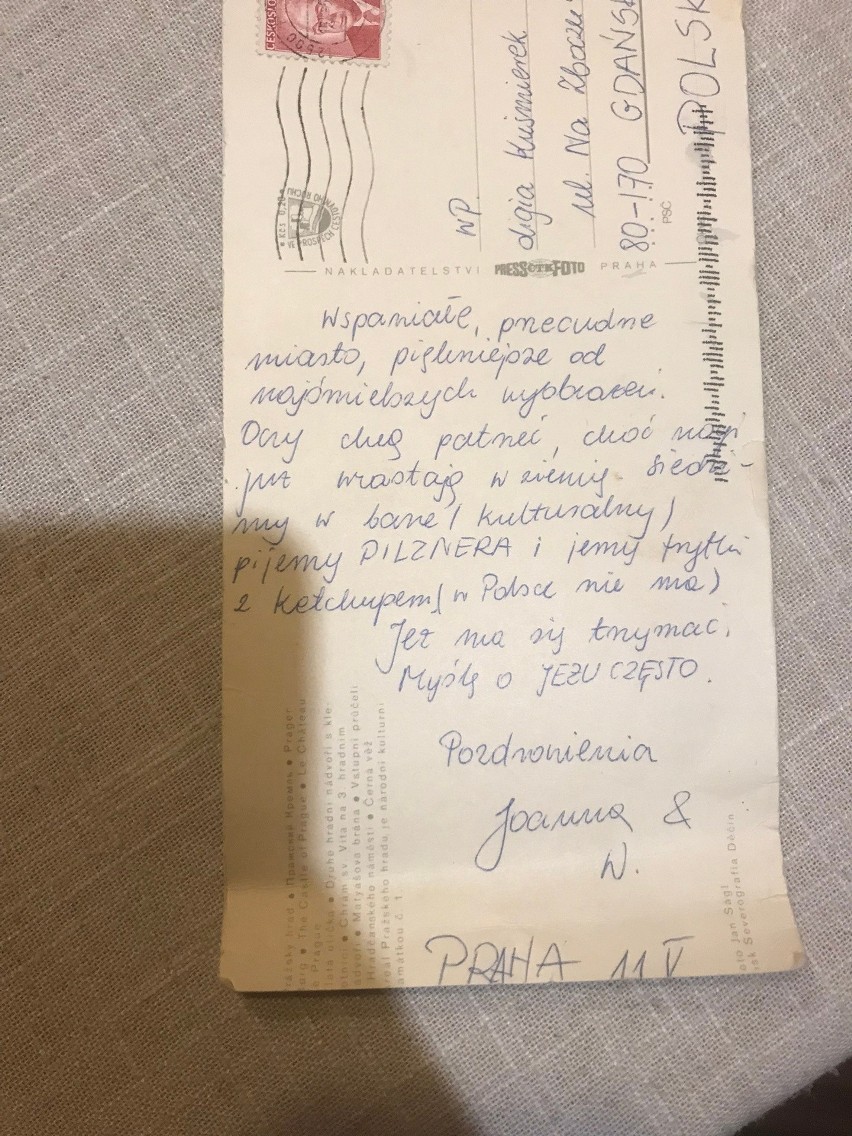 ČESKOSLO
Kčs 0,20
VE PROSPĚCH CESTOVNÍHO RUCHU
WP.
Ligia Kuśmierek
ul. Na Zbocz
80-170 GDAŃSK
POLSK
PSČ
NAKLADATELSTVÍ PRESSČTKFOTO PRAHA
Wspaniałe, przecudne
miasto, piękniejsze od
najśmielszych wyobrażeń.
Oczy chcą patrzeć, choć nogi
już wrastają w ziemię. Siedzi-
my w barze (kulturalny)
pijemy PILZNERA i jemy frytki
z ketchupem (w Polsce nie ma)
Jeż ma się trzymać.
Myślę o JEZU CZĘSTO.
Pozdrowienia
Joanna &
W.
PRAHA 11 V
ažský hrad ● Пражский Кремль ● Prager
urg ● The Castle of Prague ● Le Château
e Prague
latá ulička ● Druhé hradní nádvoří s kle-
otnicí ● Chrám sv. Víta na 3. hradním
ádvoří ● Matyášova brána ● Vstupní průčelí
Hradčanského náměstí ● Černá věž
reál Pražského hradu je národní kulturní
amátkou č. 1.
oto Jan Ságl
isk Severografia Děčín